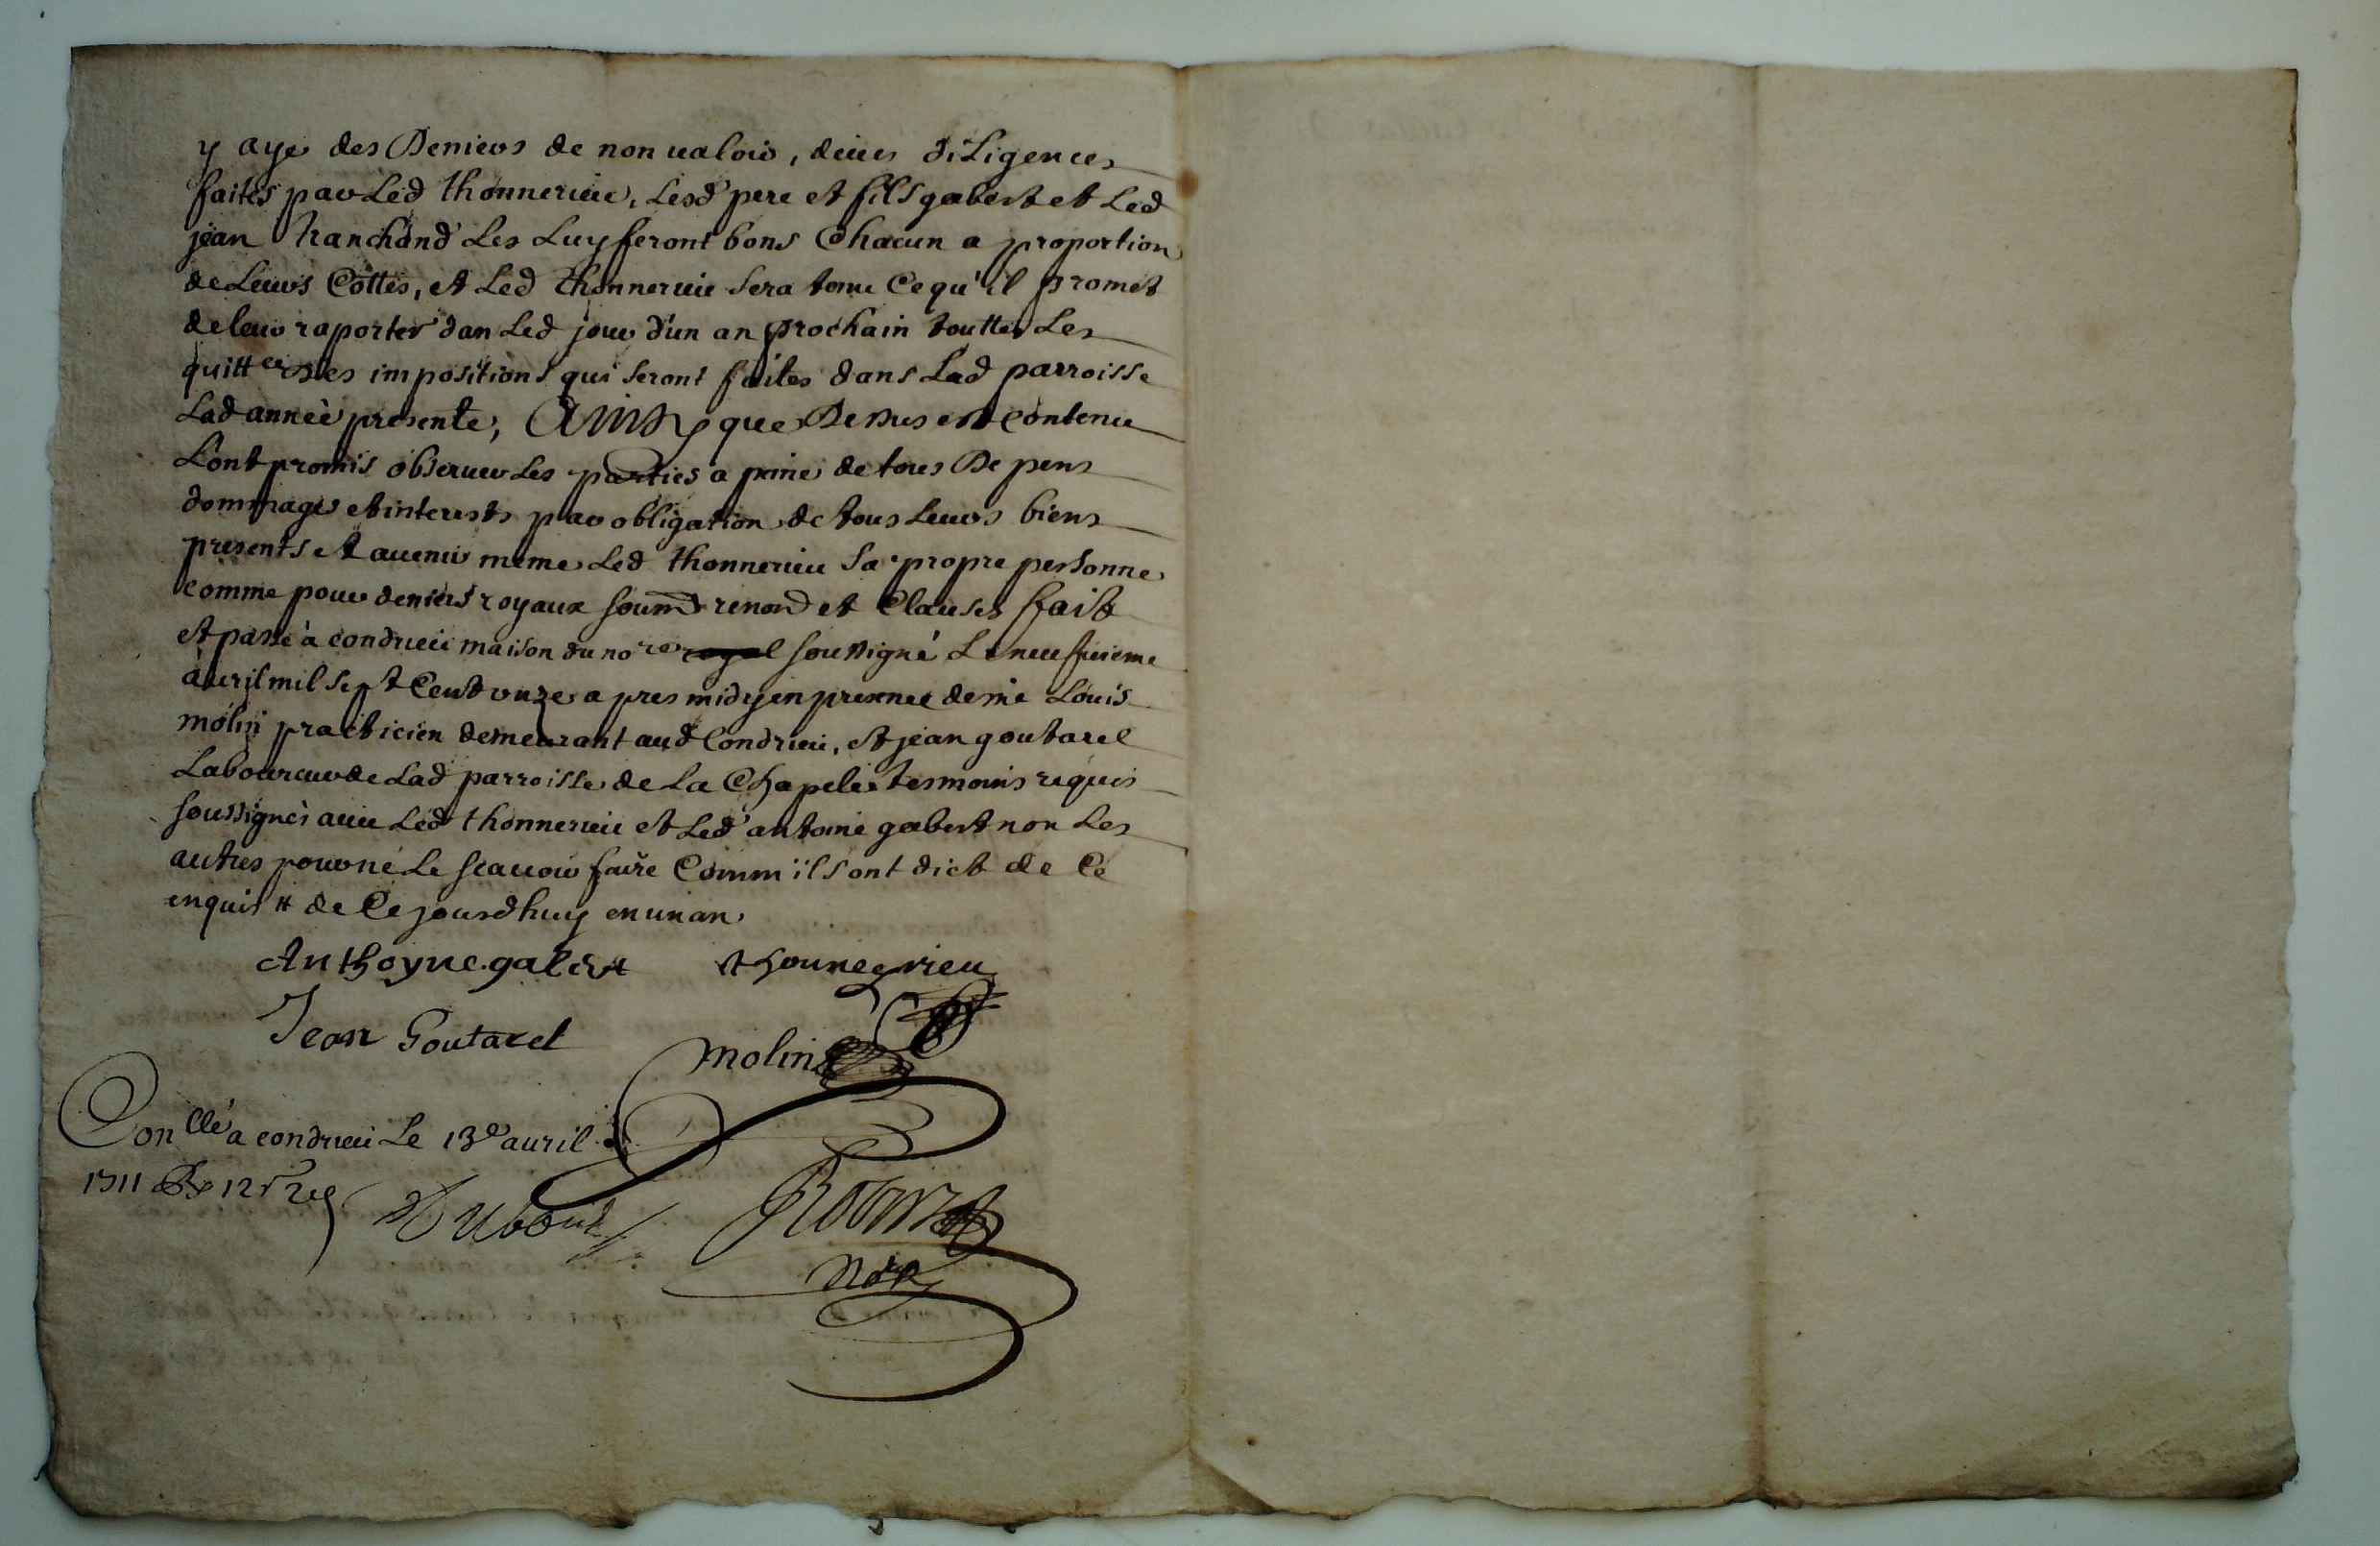 y aye des Deniers de non ualoir, deues diligences
faites par Led thonnerieu, Lesd pere et fils gabert et Led
jean tranchand Les Luy feront bons Chacun a proportion
de Leurs Cottes, et Led thonnerieu sera tenu Ce qu'il promet
de leur raporter dan Led jour d'un an prochain touttes Les
quittces des impositions qui seront faites dans Lad parroisse
Lad anneè presente, Ainsy que Dessus est Contenu
L'ont promis obseruer Les parties a peine de tous Depens
dommages et interests par obligation de tous Leurs biens
presents et auenir meme Led thonnerieu sa propre personne
Comme pour deniers royaux soumd renond et Clauses ffait
et passé à condrieu maison du nore royal soussigné Le neufuieme
auril mil sept Cent onze a pres midy en presence de me Louis
molin practicien demeurant aud Condrieu, et jean goutarel
Laboureur de Lad parroisse de La Chapele tesmoins requis
soussignès auec Led thonnerieu et Led antoine gabert non Les
autres pour ne Le scauoir faire Comm ils ont dict de Ce
enquis # de Ce jourdhuy en un an.
Anthoyne gabert thonnerieu
Jean Goutarel
molin
Conllé a condrieu Le 13e auril
1711 Rx 12s